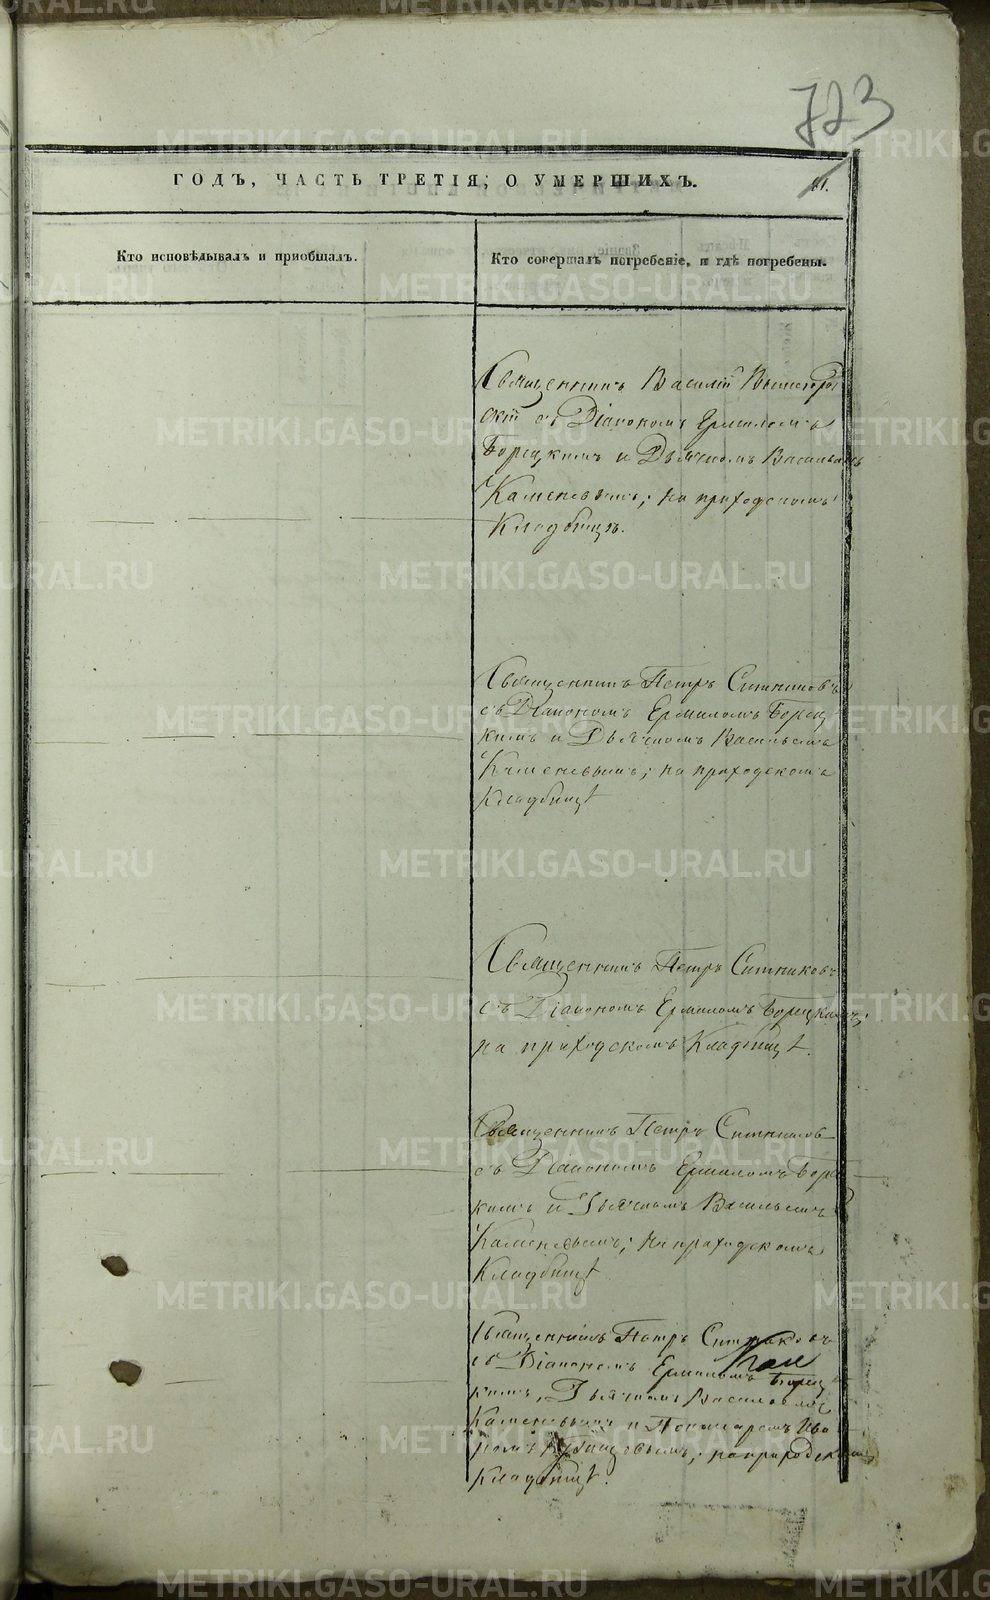 723
ГОДЪ, ЧАСТЬ ТРЕТІЯ, О УМЕРШИХЪ.
Кто исповѣдывалъ и пріобщалъ.
Кто совершалъ погребеніе, и гдѣ погребены.
Священникъ Василій
скій съ Діакономъ Ермиломъ
Борецкимъ и Дьячкомъ Васильемъ
Каменевымъ; на приходскомъ
Кладбищѣ.
Священникъ Петръ Ситниковъ
съ Діакономъ Ермиломъ Борец
кимъ и Дьячкомъ Васильемъ
Каменевымъ; на приходскомъ
Кладбищѣ
Священникъ Петръ Ситниковъ
съ Діакономъ Ермиломъ Борецкимъ;
на приходскомъ Кладбищѣ.
Священникъ Петръ Ситниковъ
съ Діакономъ Ермиломъ Борец
кимъ и Дьячкомъ Васильемъ
Каменевымъ; на приходскомъ
Кладбищѣ
Священникъ Петръ Ситниковъ
съ Діакономъ Ермиломъ Борец
кимъ, Дьячкомъ
Каменевымъ и Пономаремъ Ива
номъ на приходскомъ
Кладбищѣ.
METRIKI.GASO-URAL.RU